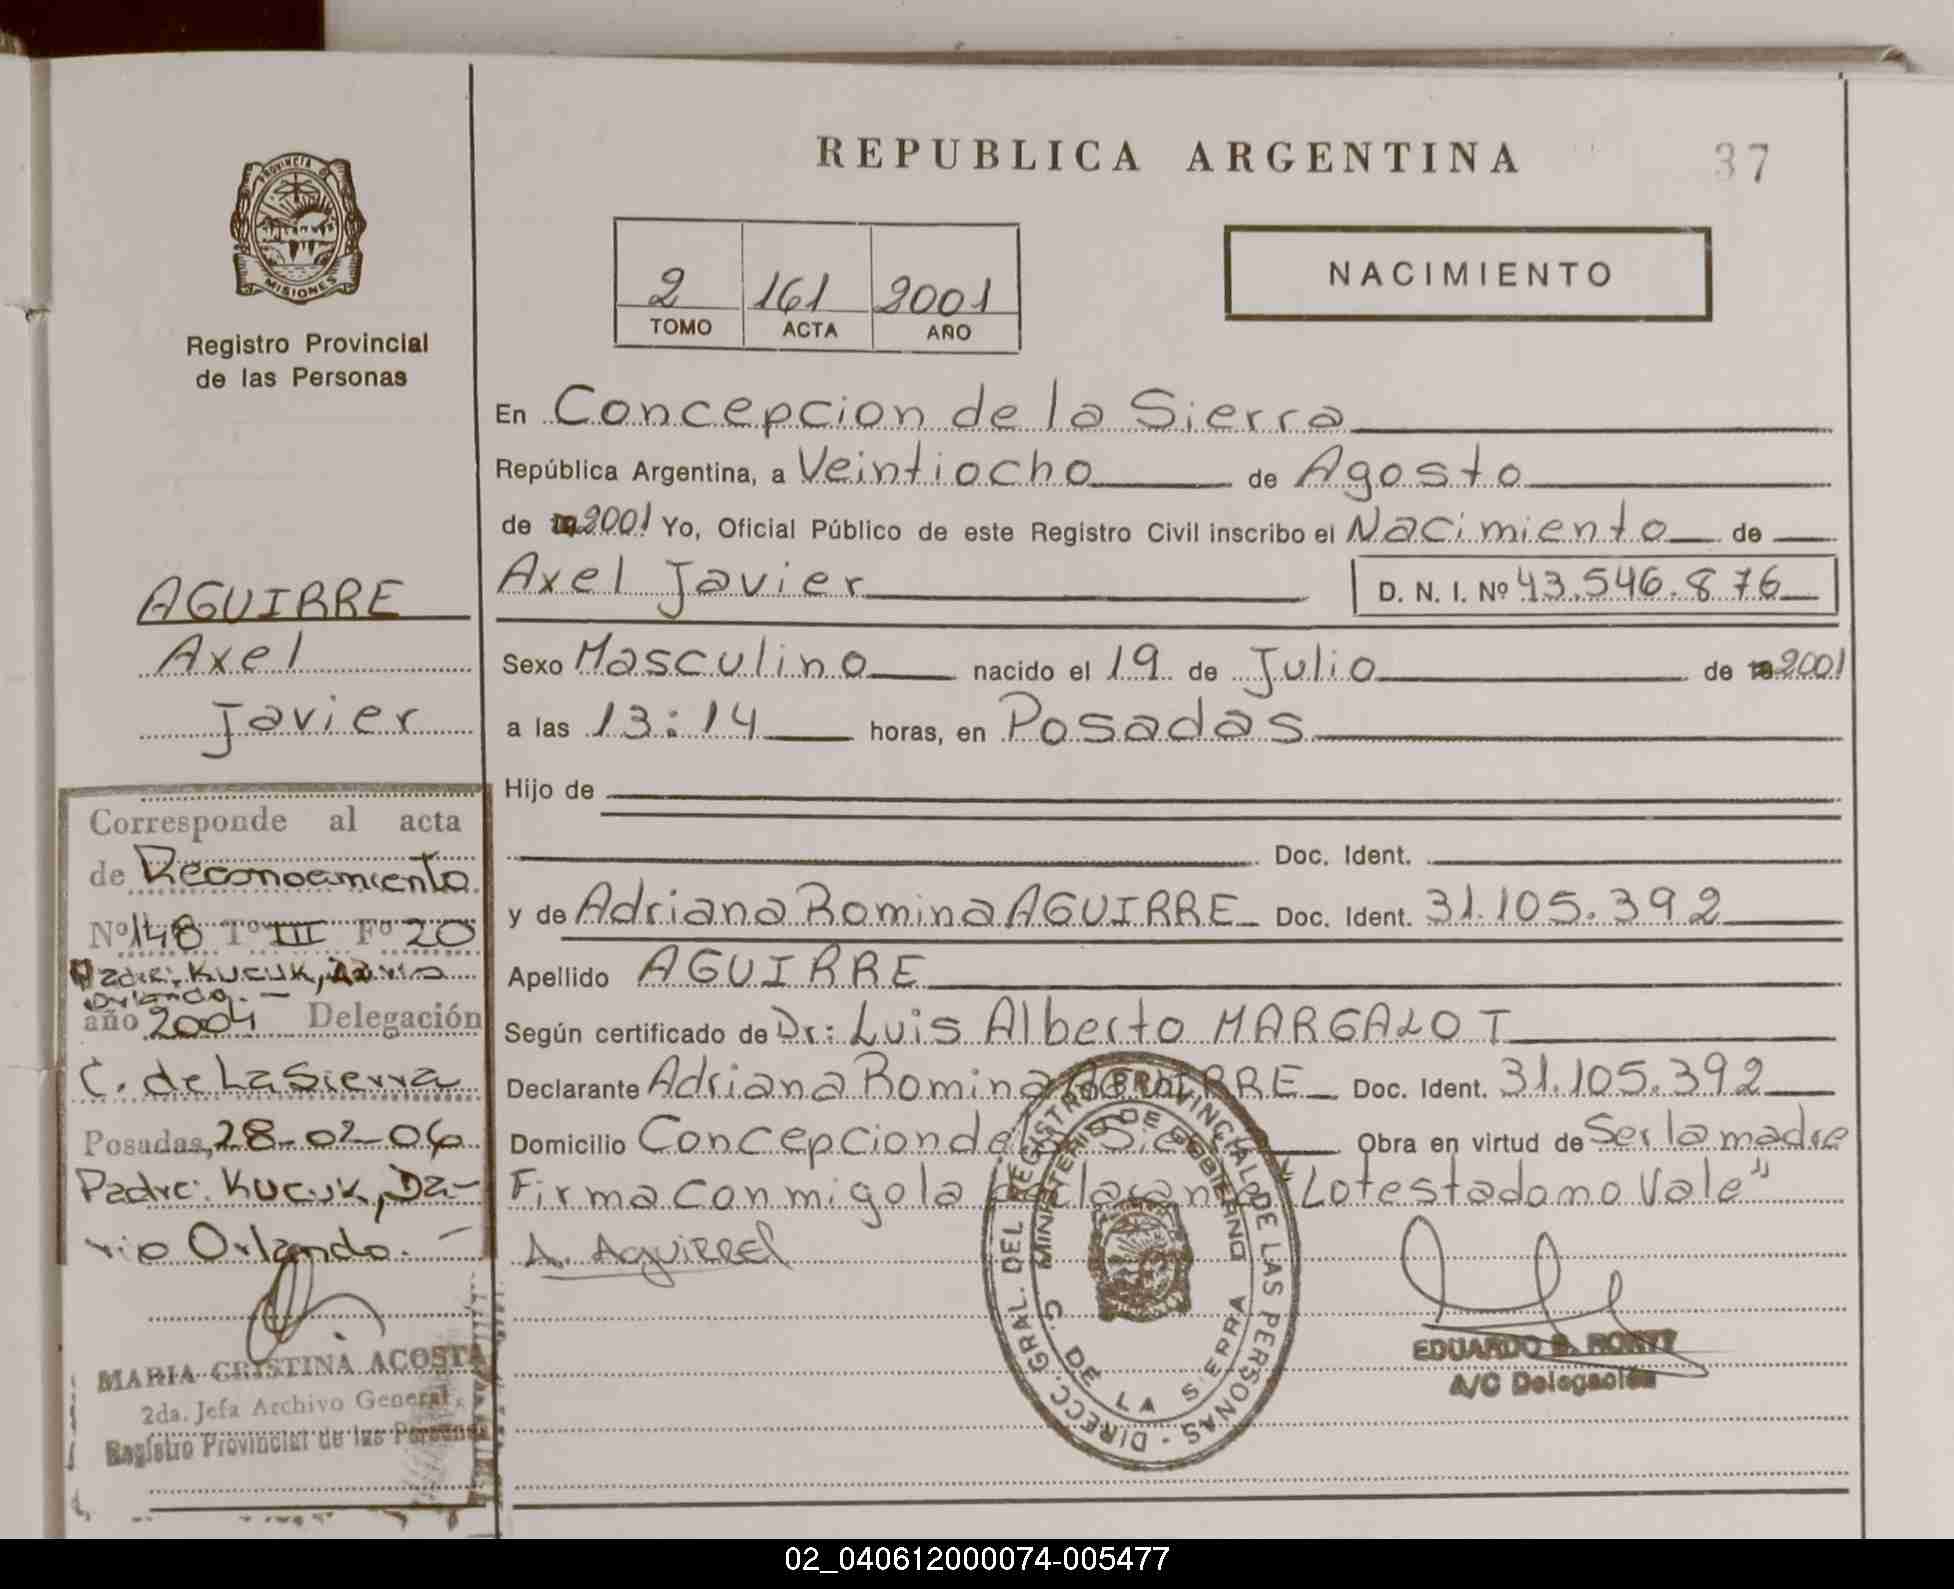 REPUBLICA ARGENTINA
37
PROVINCIA DE
MISIONES
Registro Provincial
de las Personas
2 161 2001
TOMO ACTA AÑO
NACIMIENTO
En Concepcion de la Sierra
República Argentina, a Veintiocho de Agosto
de 2001 Yo, Oficial Público de este Registro Civil inscribo el Nacimiento de
Axel Javier D. N. I. Nº 43.546.876
Sexo Masculino nacido el 19 de Julio de 2001
a las 13:14 horas, en Posadas
Hijo de
Doc. Ident.
y de Adriana Romina AGUIRRE Doc. Ident. 31.105.392
Apellido AGUIRRE
Según certificado de Dr: Luis Alberto MARGALOT
Declarante Adriana Romina AGUIRRE Doc. Ident. 31.105.392
Domicilio Concepcion de la Sierra Obra en virtud de Ser la madre
Firma conmigo la declarante "Lo testado no Vale"
A. AguiRREl
DIRECC. GRAL. DEL REGISTRO PROVINCIAL DE LAS PERSONAS -
MINISTERIO DE GOBIERNO
C. DE LA SIERRA
EDUARDO
A/C Delegación
AGUIRRE
Axel
Javier
Corresponde al acta
de Reconocimiento
Nº 148 Tº III Fº 20
Padre: KUCUK, Dario
Orlando. -
año 2004 Delegación
C. de La Sierra
Posadas, 28-02-06
Padre: KUCUK, Da-
rio Orlando. -
MARIA CRISTINA ACOSTA
2da. Jefa Archivo General
Registro Provincial de las Personas
02_040612000074-005477